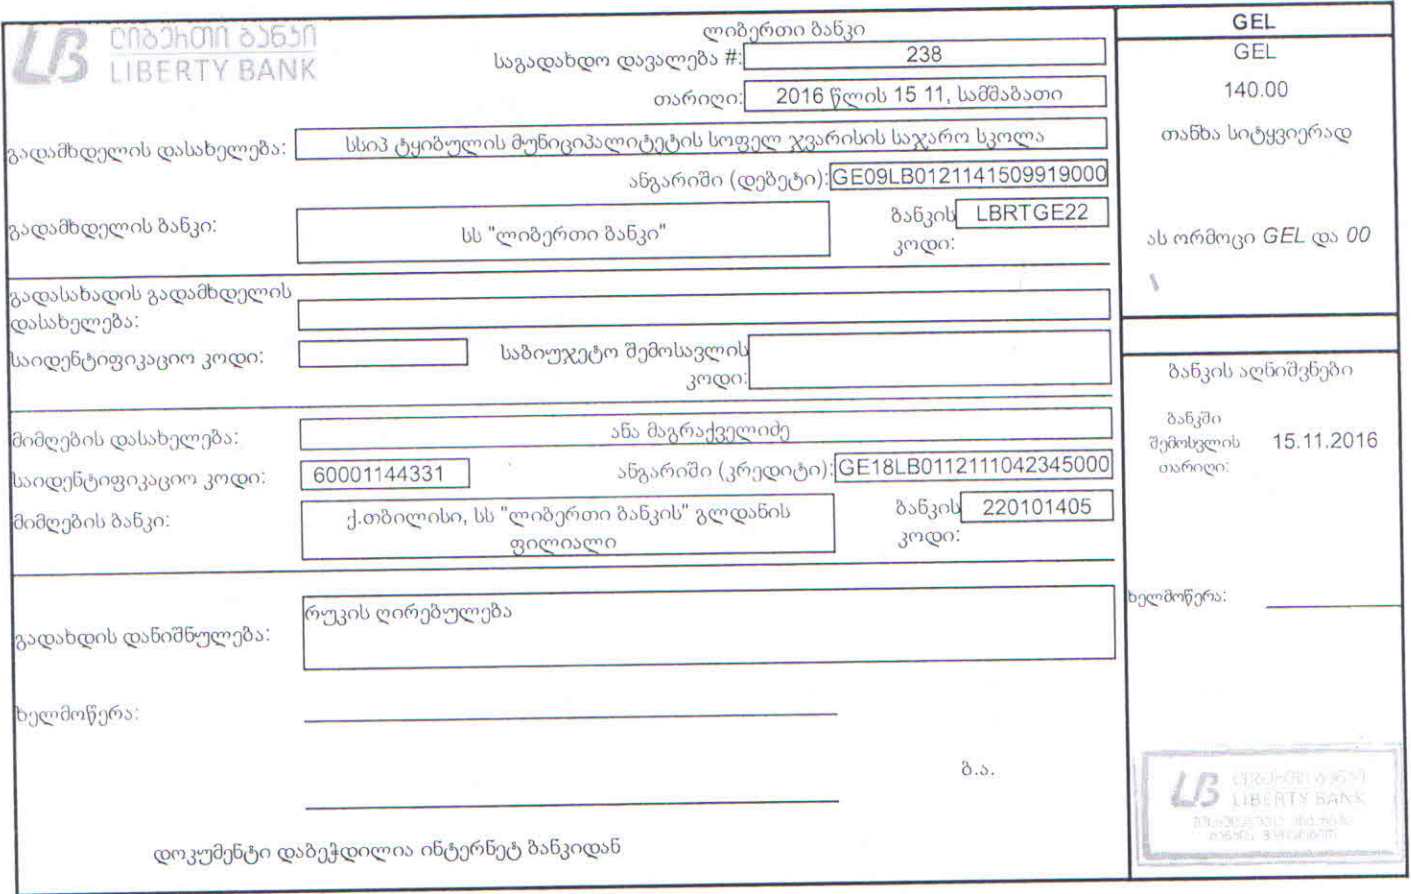 ლიბერთი ბანკი
LIBERTY BANK
ლიბერთი ბანკი
საგადახდო დავალება #: 238
თარიღი: 2016 წლის 15 11, სამშაბათი
გადამხდელის დასახელება: სსიპ ტყიბულის მუნიციპალიტეტის სოფელ ჯვარისის საჯარო სკოლა
ანგარიში (დებეტი): GE09LB0121141509919000
გადამხდელის ბანკი: სს "ლიბერთი ბანკი" ბანკის კოდი: LBRTGE22
გადასახადის გადამხდელის
დასახელება:
საიდენტიფიკაციო კოდი: საბიუჯეტო შემოსავლის
კოდი:
მიმღების დასახელება: ანა მაგრაქველიძე
საიდენტიფიკაციო კოდი: 60001144331 ანგარიში (კრედიტი): GE18LB0112111042345000
მიმღების ბანკი: ქ.თბილისი, სს "ლიბერთი ბანკის" გლდანის
ფილიალი
ბანკის კოდი: 220101405
გადახდის დანიშნულება: რუკის ღირებულება
ხელმოწერა:
ბ.ა.
დოკუმენტი დაბეჭდილია ინტერნეტ ბანკიდან
GEL
GEL
140.00
თანხა სიტყვიერად
ას ორმოცი GEL და 00
ბანკის აღნიშვნები
ბანკში
შემოსვლის 15.11.2016
თარიღი:
ხელმოწერა:
ლიბერთი ბანკი
LIBERTY BANK